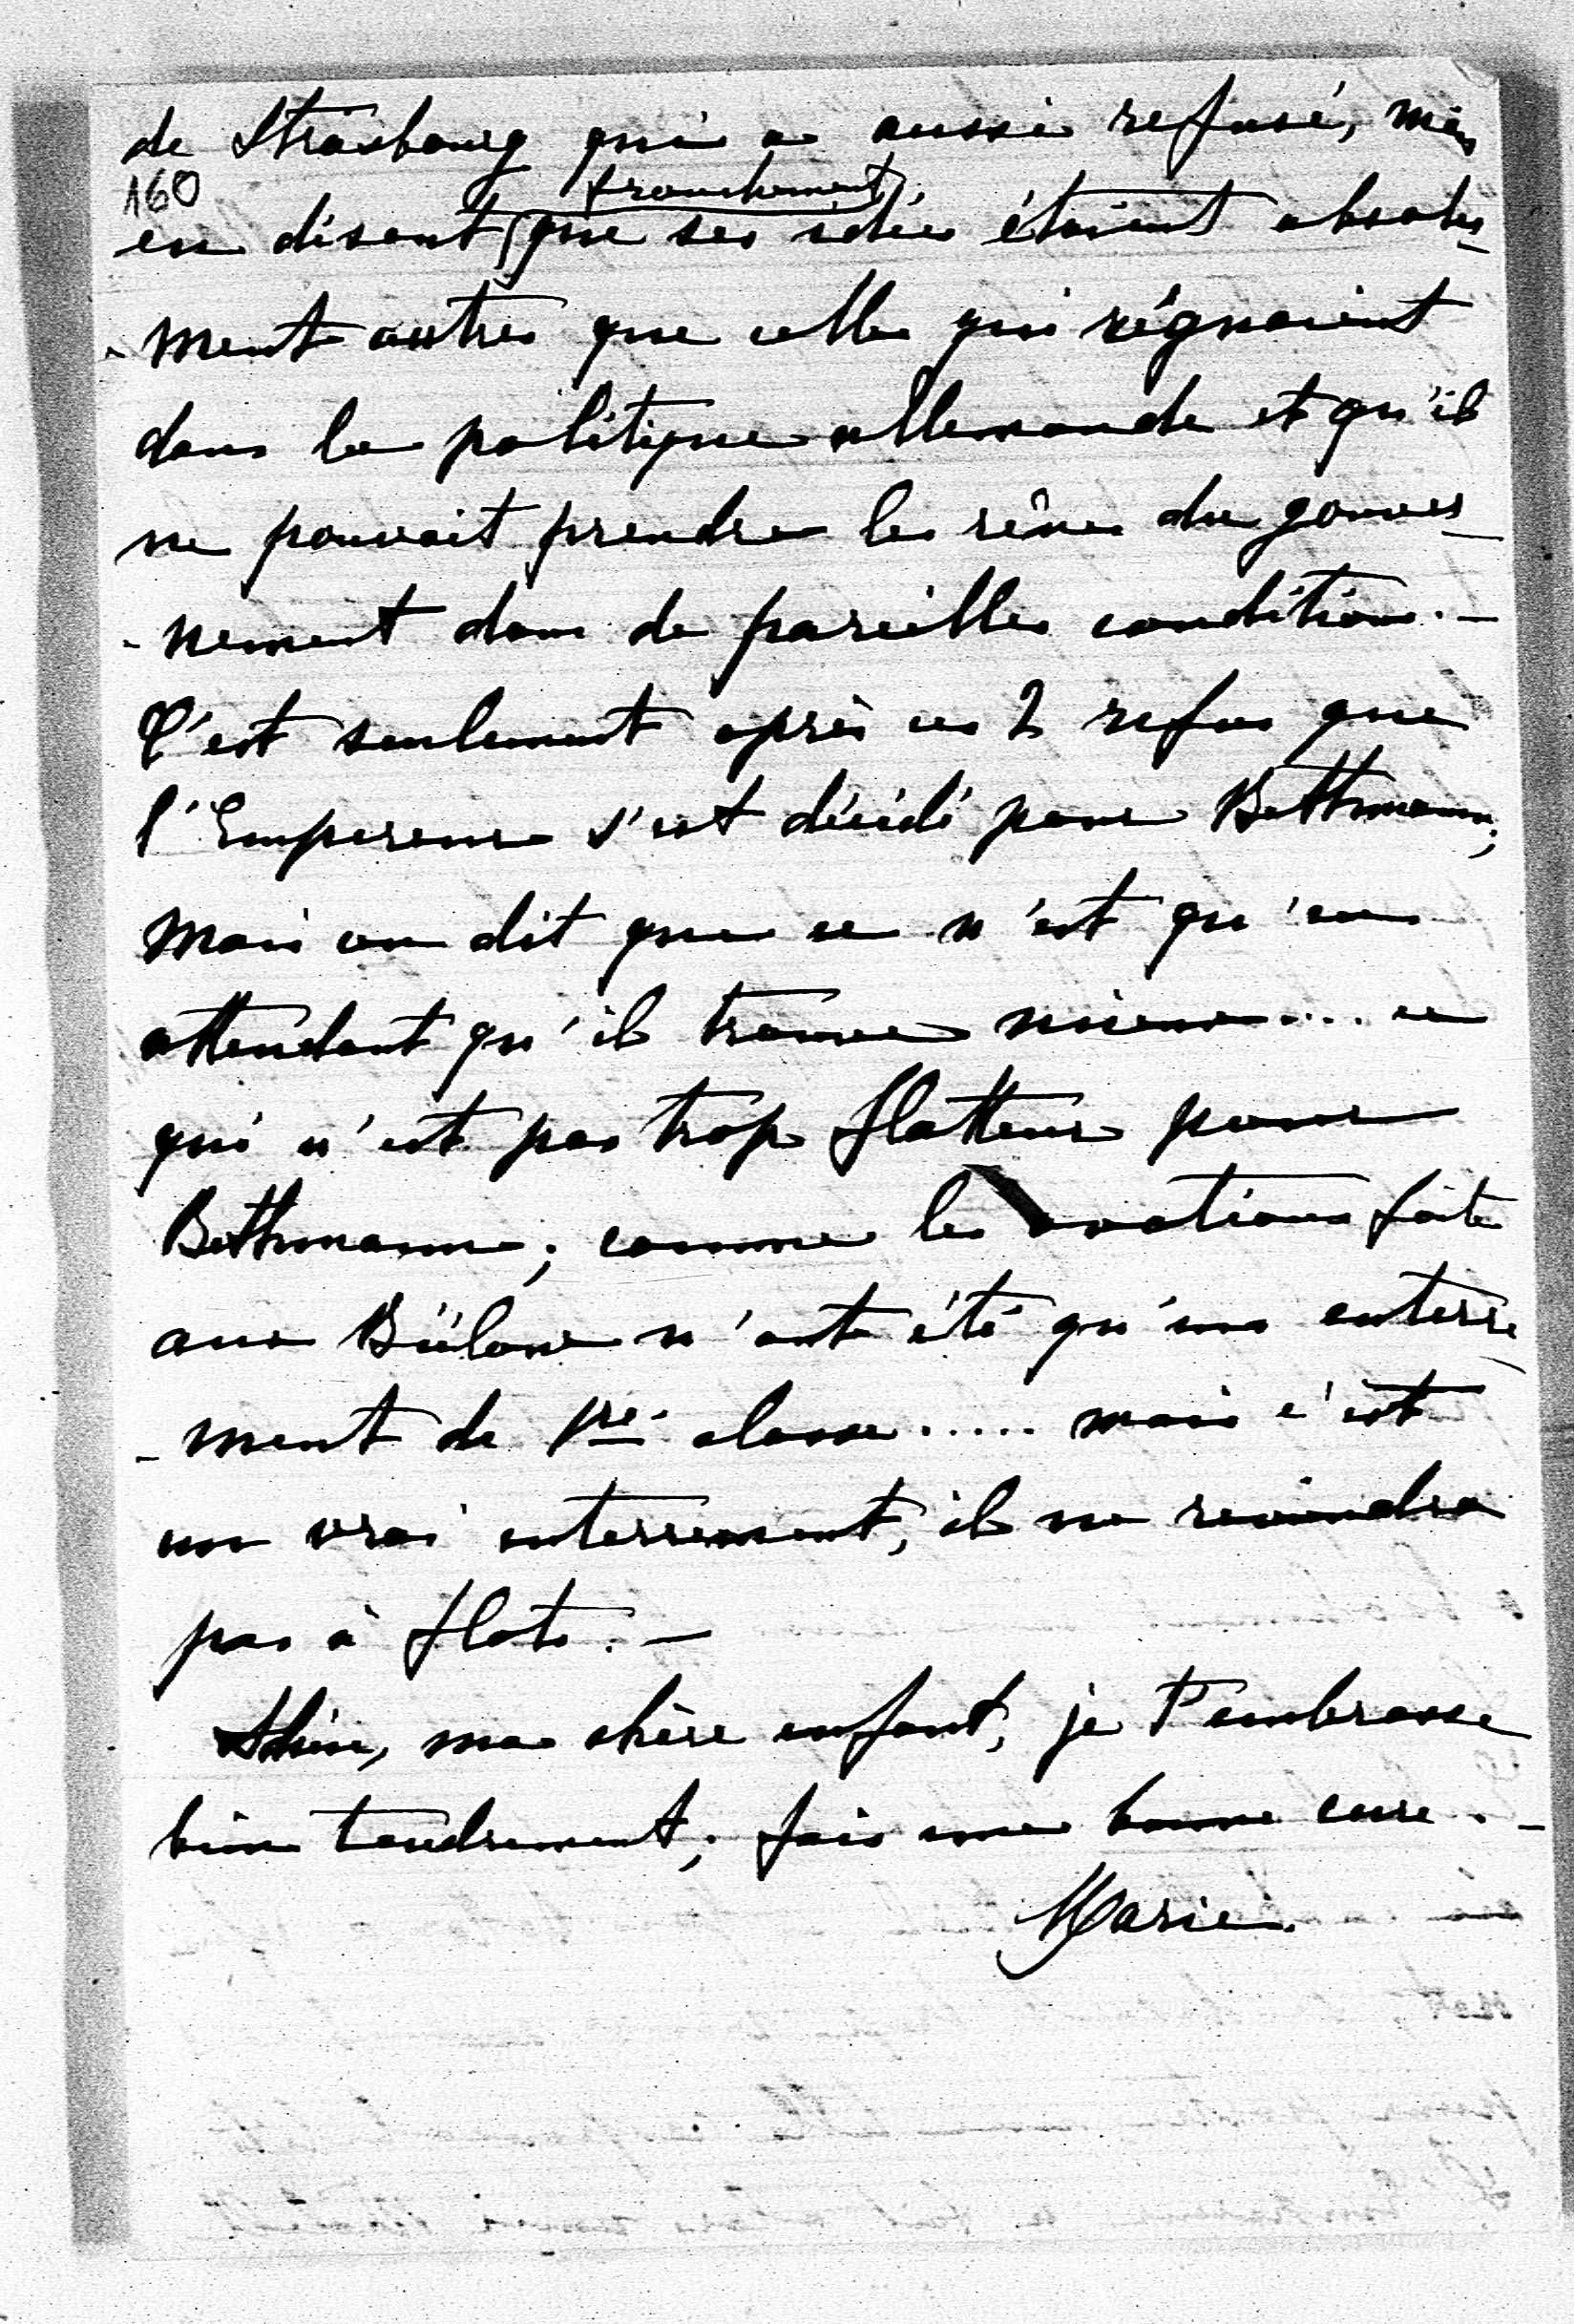 de Strasbourg qui a aussi refusé, mais
160
franchement
en disant que ses idées étaient absolu-
-ment autres que celles qui régnaient
dans la politique allemande et qu'il
ne pouvait prendre les rênes du gouver-
-nement dans de pareilles conditions. -
C'est seulement après ces 2 refus que
l'Empereur s'est décidé pour Bethmann;
mais on dit que ce n'est qu'en
attendant qu'il trouve mieux.... ce
qui n'est pas trop flatteur pour
Bethmann; comme les ovations faites
aux Bülow n'ont été qu'un enterre
-ment de 1re classe..... mais c'est
un vrai enterrement, il ne reviendra
pas à flots. -
ma chère enfant, je t'embrasse
bien tendrement; fais une bonne cure. -
Marie.